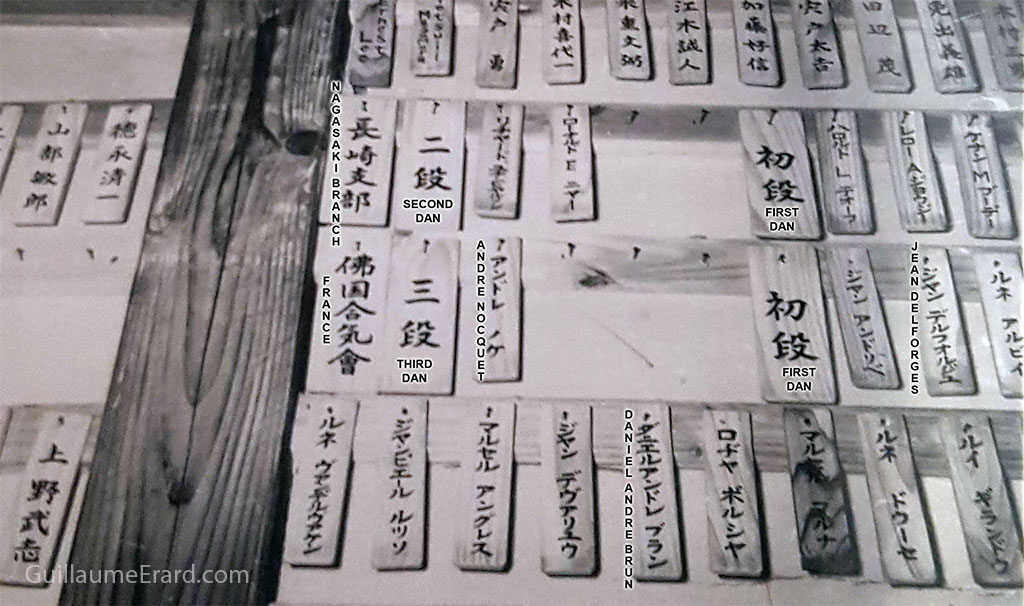 宍戸 勇
木村喜代一
江木誠人
加藤好信
宍戸太吉
田辺 茂
義雄
木村
山部敏郎
徳永清一
NAGASAKI BRANCH
長崎支部
二段
SECOND DAN
リチャード
E ニマー
初段
FIRST DAN
ハロルド L
レロー A
ケナン M アーデー
FRANCE
佛国合気會
三段
THIRD DAN
ANDRE NOCQUET
アンドレ ノケ
初段
FIRST DAN
ジャン アンドリベ
JEAN DELFORGES
ジャン デルフォルジュ
ルネ アルビイ
上野武志
ルネ
ジャンピエール ルソソ
マルセル アングレス
ジャン デヴァリエウ
DANIEL ANDRE BRUN
ダニエルアンドレ ブラン
ロヂャ ボルシヤ
ルネ ドゥーセ
ルイ ギランドウ
GuillaumeErard.com